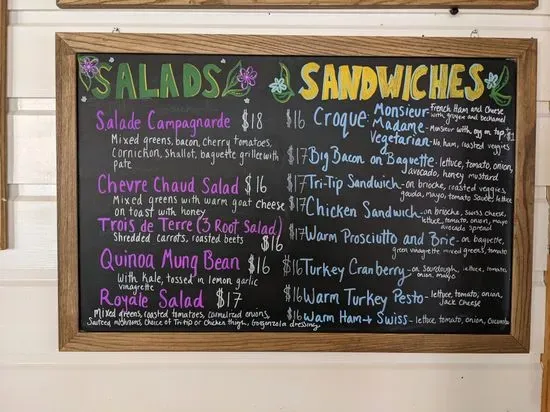 SALADS
Salade Campagnarde $18
Mixed greens, bacon, cherry tomatoes,
Cornichon, shallot, baguette griller with
pate
Chevre Chaud Salad $16
Mixed greens with warm goat cheese
on toast with honey
Trois de Terre (3 Root Salad)
Shredded carrots, roasted beets $16
Quinoa Mung Bean $16
With kale, tossed in lemon garlic
vinagrette
Royale Salad $17
Mixed greens, roasted tomatoes, carmelized onions,
Sauteed mushrooms, choice of Tri-tip or Chicken thigh, Gorgonzola dressing
SANDWICHES
$16 Croque:
Monsieur- French Ham and Cheese
with gruyere and bechamel
Madame- Monsieur with egg on top + $1
Vegetarian- No ham, roasted veggies
$17 Big Bacon on Baguette- lettuce, tomato, onion,
avocado, honey mustard
$17 Tri-Tip Sandwich- on brioche, roasted veggies,
gouda, mayo, tomato lettuce
$17 Chicken Sandwich- on brioche, swiss cheese,
lettuce, tomato, onion, mayo
avocado spread
$17 Warm Prosciutto and Brie- on baguette,
green vinagrette mixed greens, tomato
$16 Turkey Cranberry- on sourdough, lettuce, tomato,
onion, mayo
$16 Warm Turkey Pesto- lettuce, tomato, onion,
jack cheese
$16 Warm Ham + Swiss- lettuce, tomato, onion, cucumber